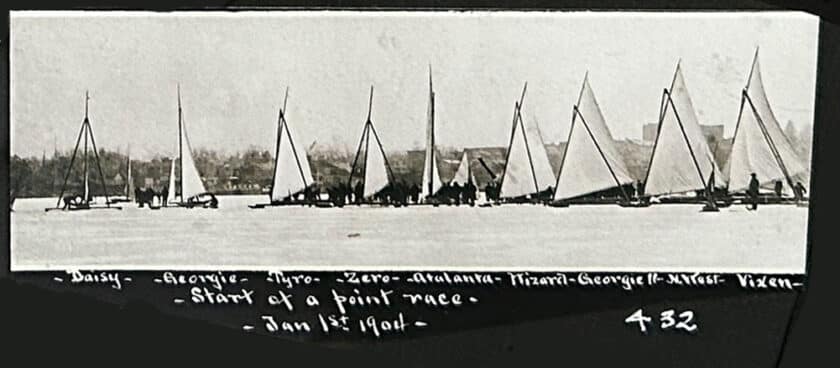 - Daisy - - Georgie - - Tyro - - Zero - - Atalanta - Wizard - Georgie II - N. West - Vixen -
- Start of a point race -
- Jan 1st 1904 - 432